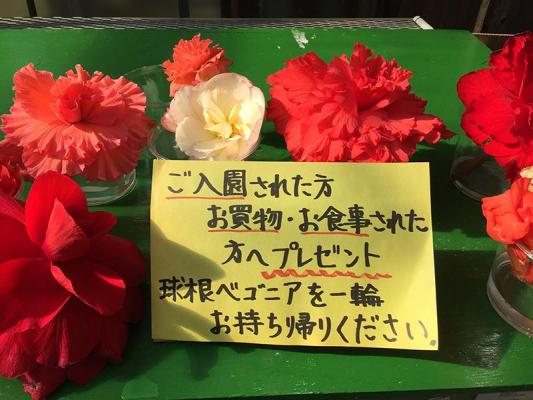 ご入園された方
お買物・お食事された
方へプレゼント
球根ベゴニアを一輪
お持ち帰りください。